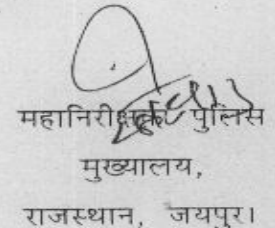 महानिरीक्षक पुलिस
मुख्यालय,
राजस्थान, जयपुर।